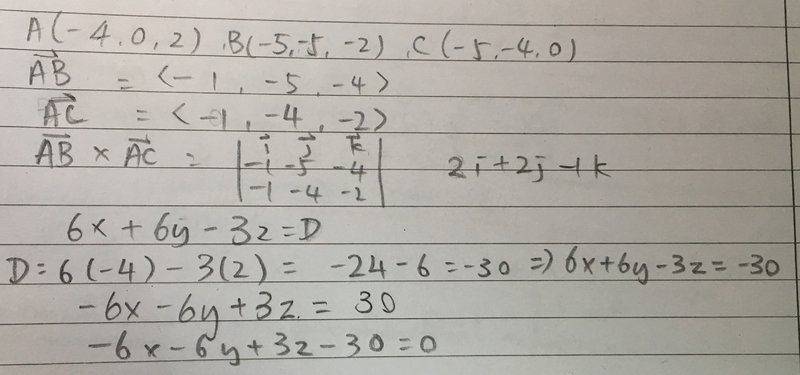 A(-4,0,2), B(-5,-5,-2), C(-5,-4,0)
AB→ = <-1, -5, -4>
AC→ = <-1, -4, -2>
AB→ × AC→ = | i→ j→ k→ | 2i+2j-1k
| -1 -5 -4 |
| -1 -4 -2 |
6x + 6y - 3z = D
D = 6(-4) - 3(2) = -24 - 6 = -30 ⇒ 6x+6y-3z = -30
-6x - 6y + 3z = 30
-6x - 6y + 3z - 30 = 0